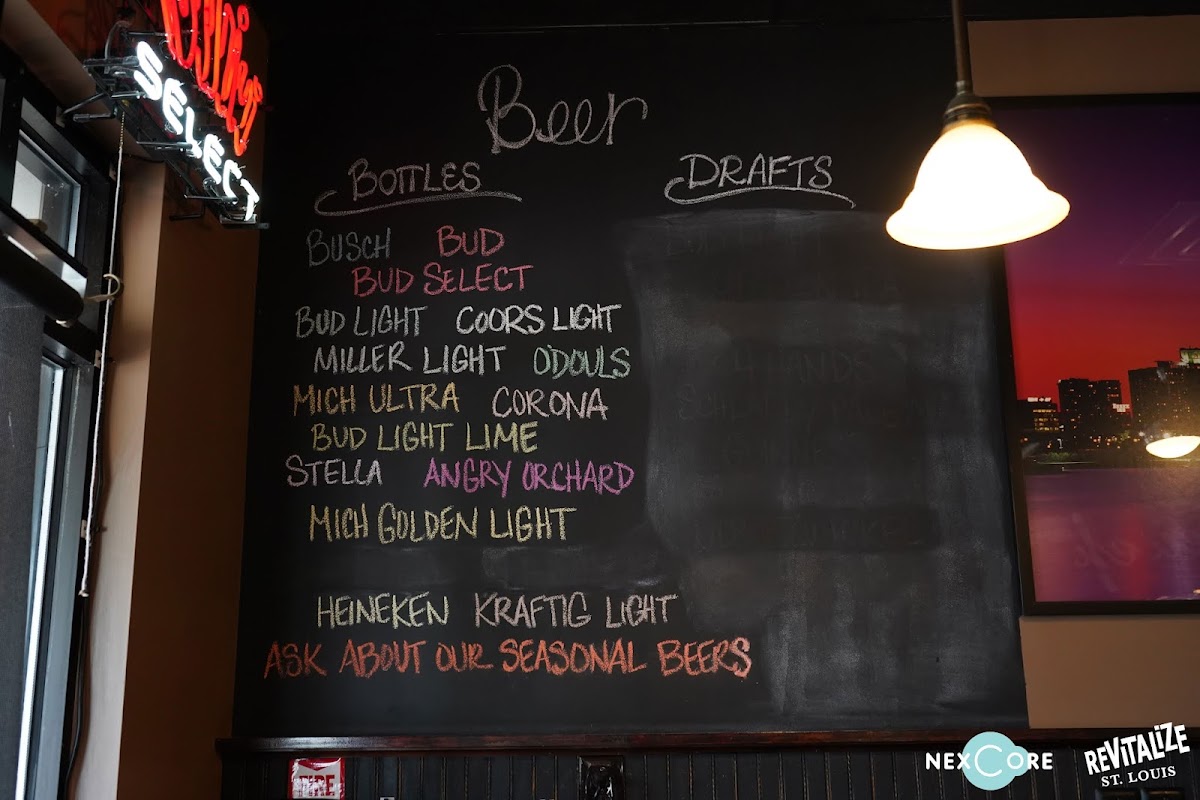 SELECT
Beer
BOTTLES
DRAFTS
BUSCH BUD
BUD SELECT
BUD LIGHT COORS LIGHT
MILLER LIGHT O'DOULS
MICH ULTRA CORONA
BUD LIGHT LIME
STELLA ANGRY ORCHARD
MICH GOLDEN LIGHT
HEINEKEN KRAFTIG LIGHT
ASK ABOUT OUR SEASONAL BEERS
FIRE
NEXCORE
REVITALIZE
ST. LOUIS